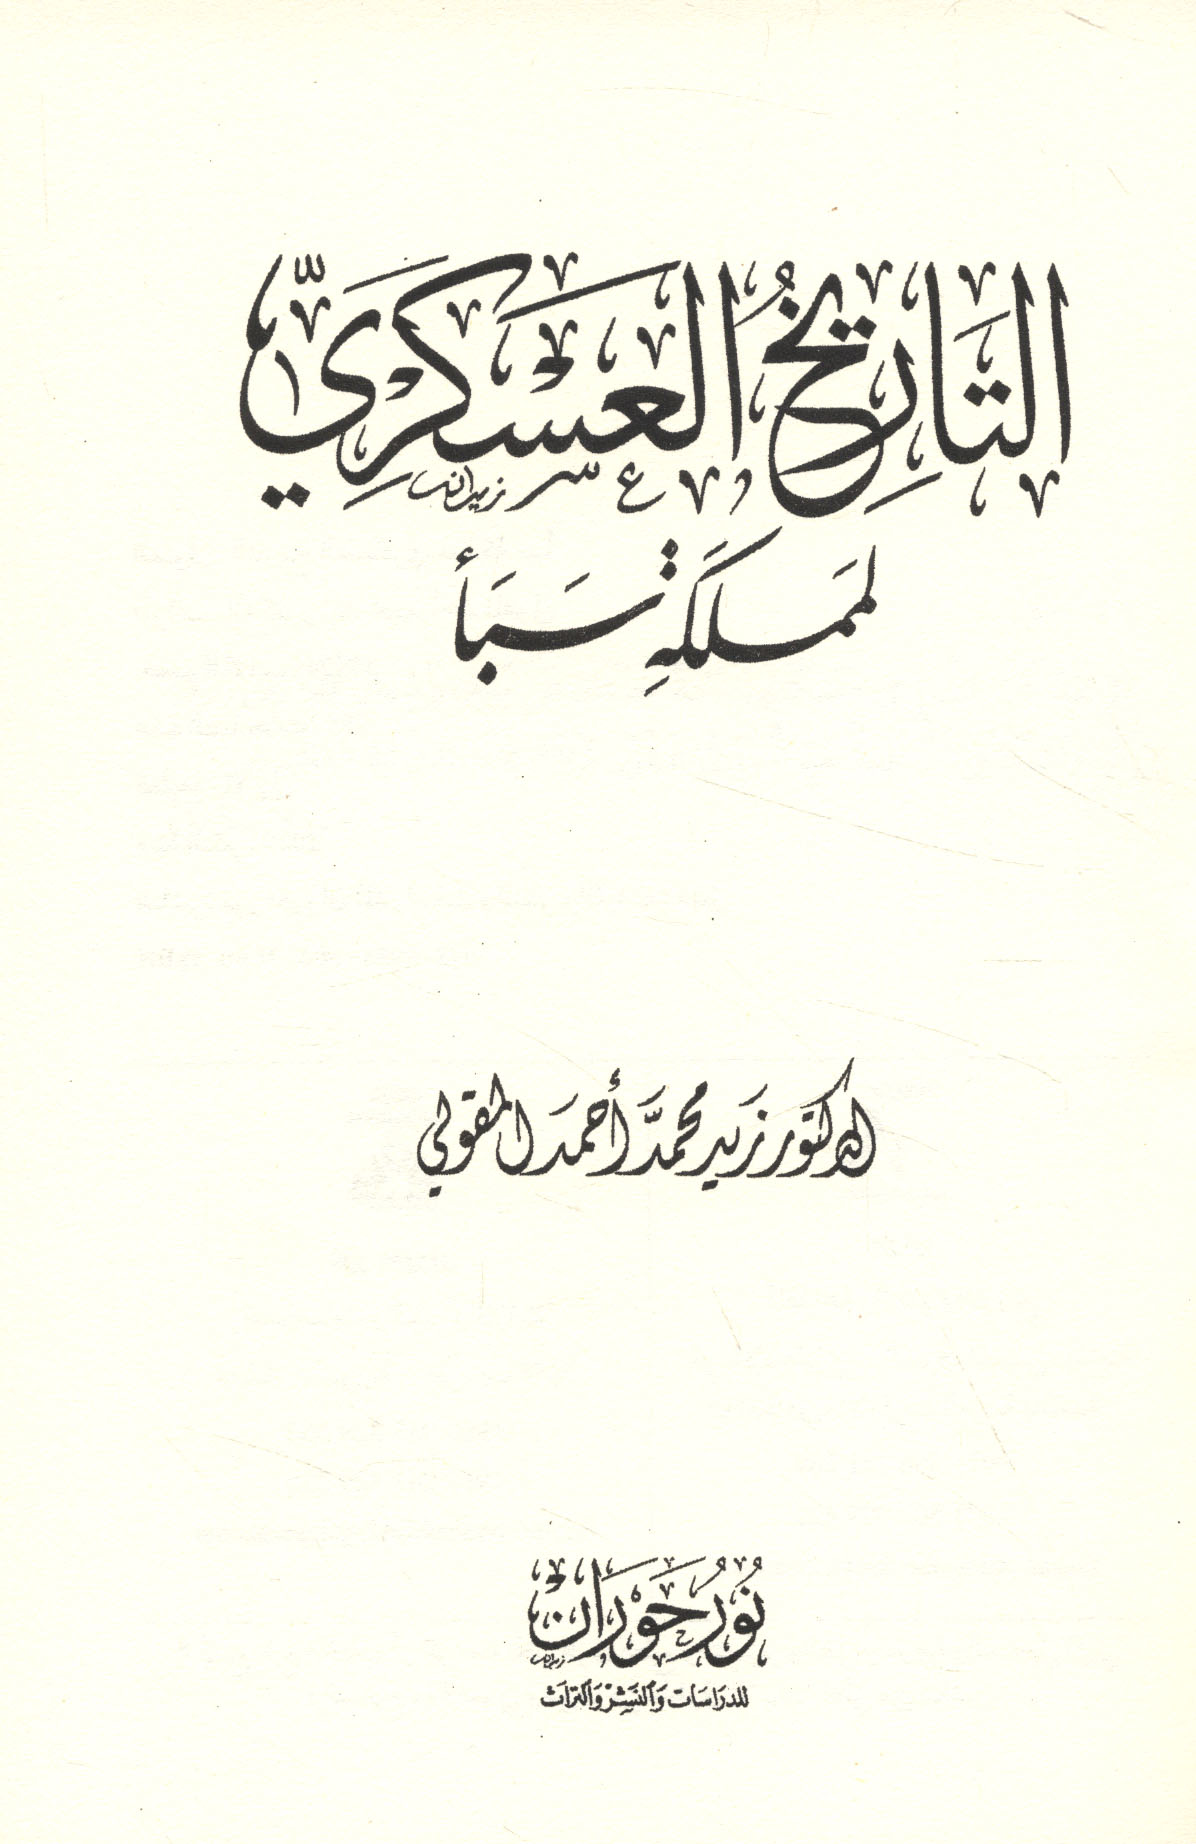 التَّارِيخُ العَسْكَرِيُّ
لمَملَكَةِ سَبَأ
الدكتور زَيد محمَّد أحمَد المقولي
نُورُ حَوْرَانْ
للدراسات وَالنَشِر وَالتراث